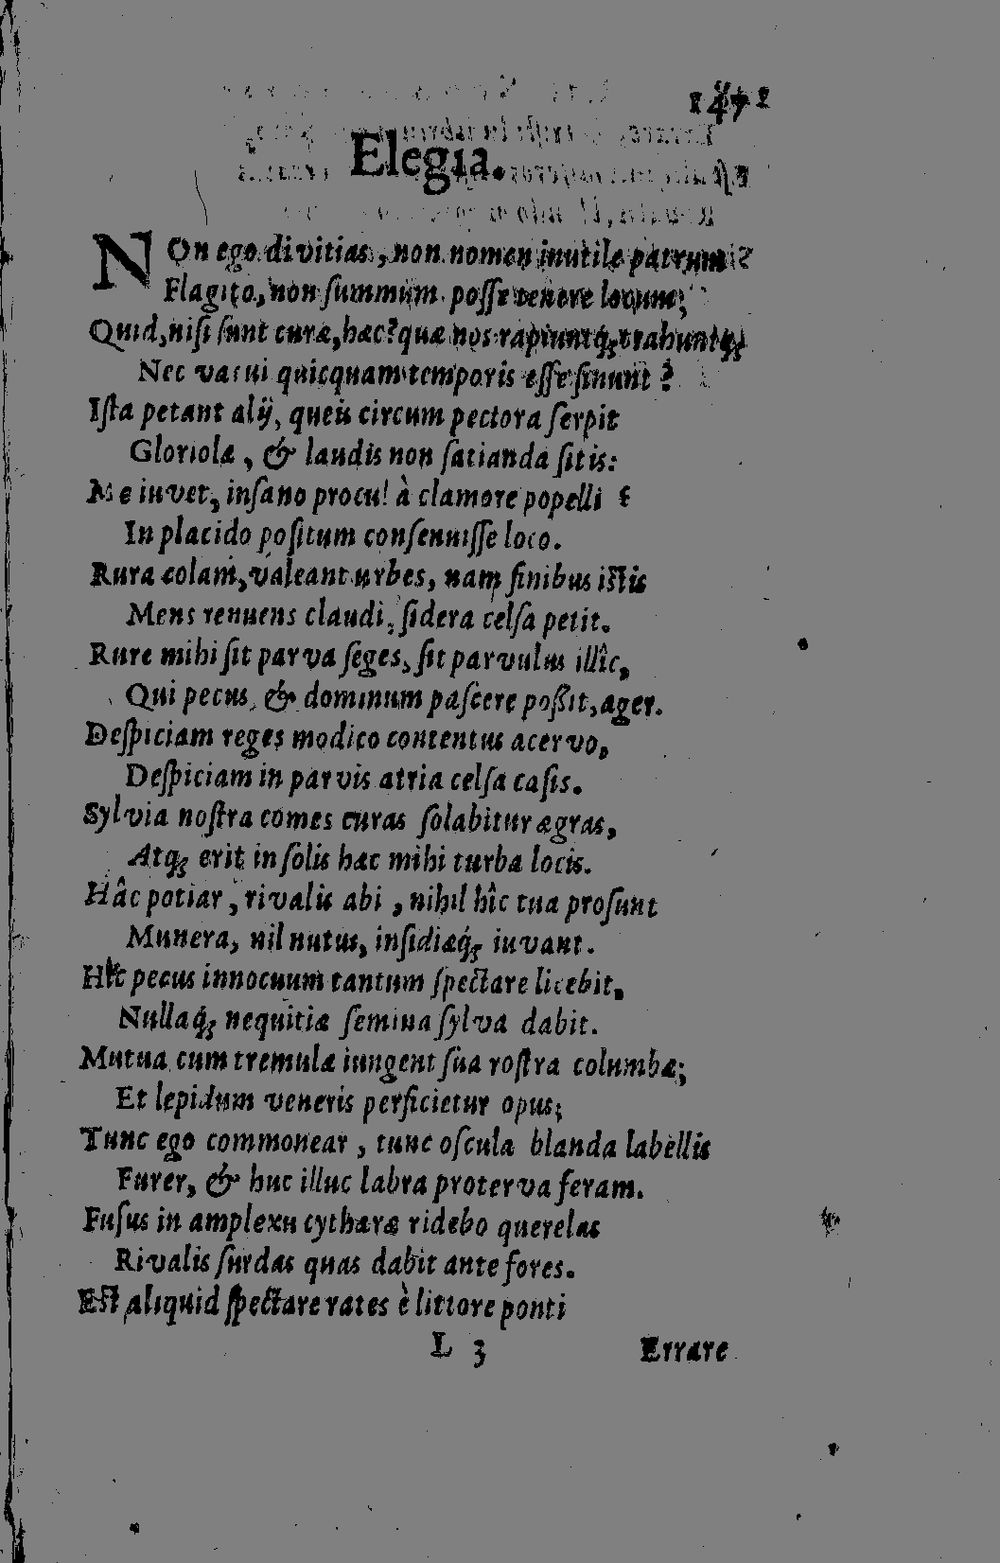 Elegia.
NOn ego divitias, non nomen inutile patrum
Flagito, non ſummum poſſe tenere locum;
Quid, niſi ſunt curæ, hæc? quæ nos rapiuntq́; trahuntq́;
Nec vacui quicquam temporis eſſe ſinunt?
Iſta petant alij, queis circum pectora ſerpit
Gloriolæ, & laudis non ſatianda ſitis:
Me iuvet, inſano procul à clamore popelli
In placido poſitum conſenuiſſe loco.
Rura colam, valeant urbes, nam finibus iſtis
Mens renuens claudi, ſidera celſa petit.
Rure mihi ſit parva ſeges, ſit parvulus illîc,
Qui pecus, & dominum paſcere poßit, ager.
Deſpiciam reges modico contentus acervo,
Deſpiciam in parvis atria celſa caſis.
Sylvia noſtra comes curas ſolabitur ægras,
Atq; erit in ſolis hæc mihi turba locis.
Hâc potiar, rivalis abi, nihil hîc tua proſunt
Munera, nil nutus, inſidiæq́; iuvant.
Hîc pecus innocuum tantum ſpectare licebit,
Nullaq́; nequitiæ ſemina ſylva dabit.
Mutua cum tremulæ iungent ſua roſtra columbæ;
Et lepidum veneris perficietur opus;
Tunc ego commonear, tunc oſcula blanda labellis
Furer, & huc illuc labra proterva feram.
Fuſus in amplexu cytharæ ridebo querelas
Rivalis ſurdas quas dabit ante fores.
Eſt aliquid ſpectare rates è littore ponti
L 3 Errare